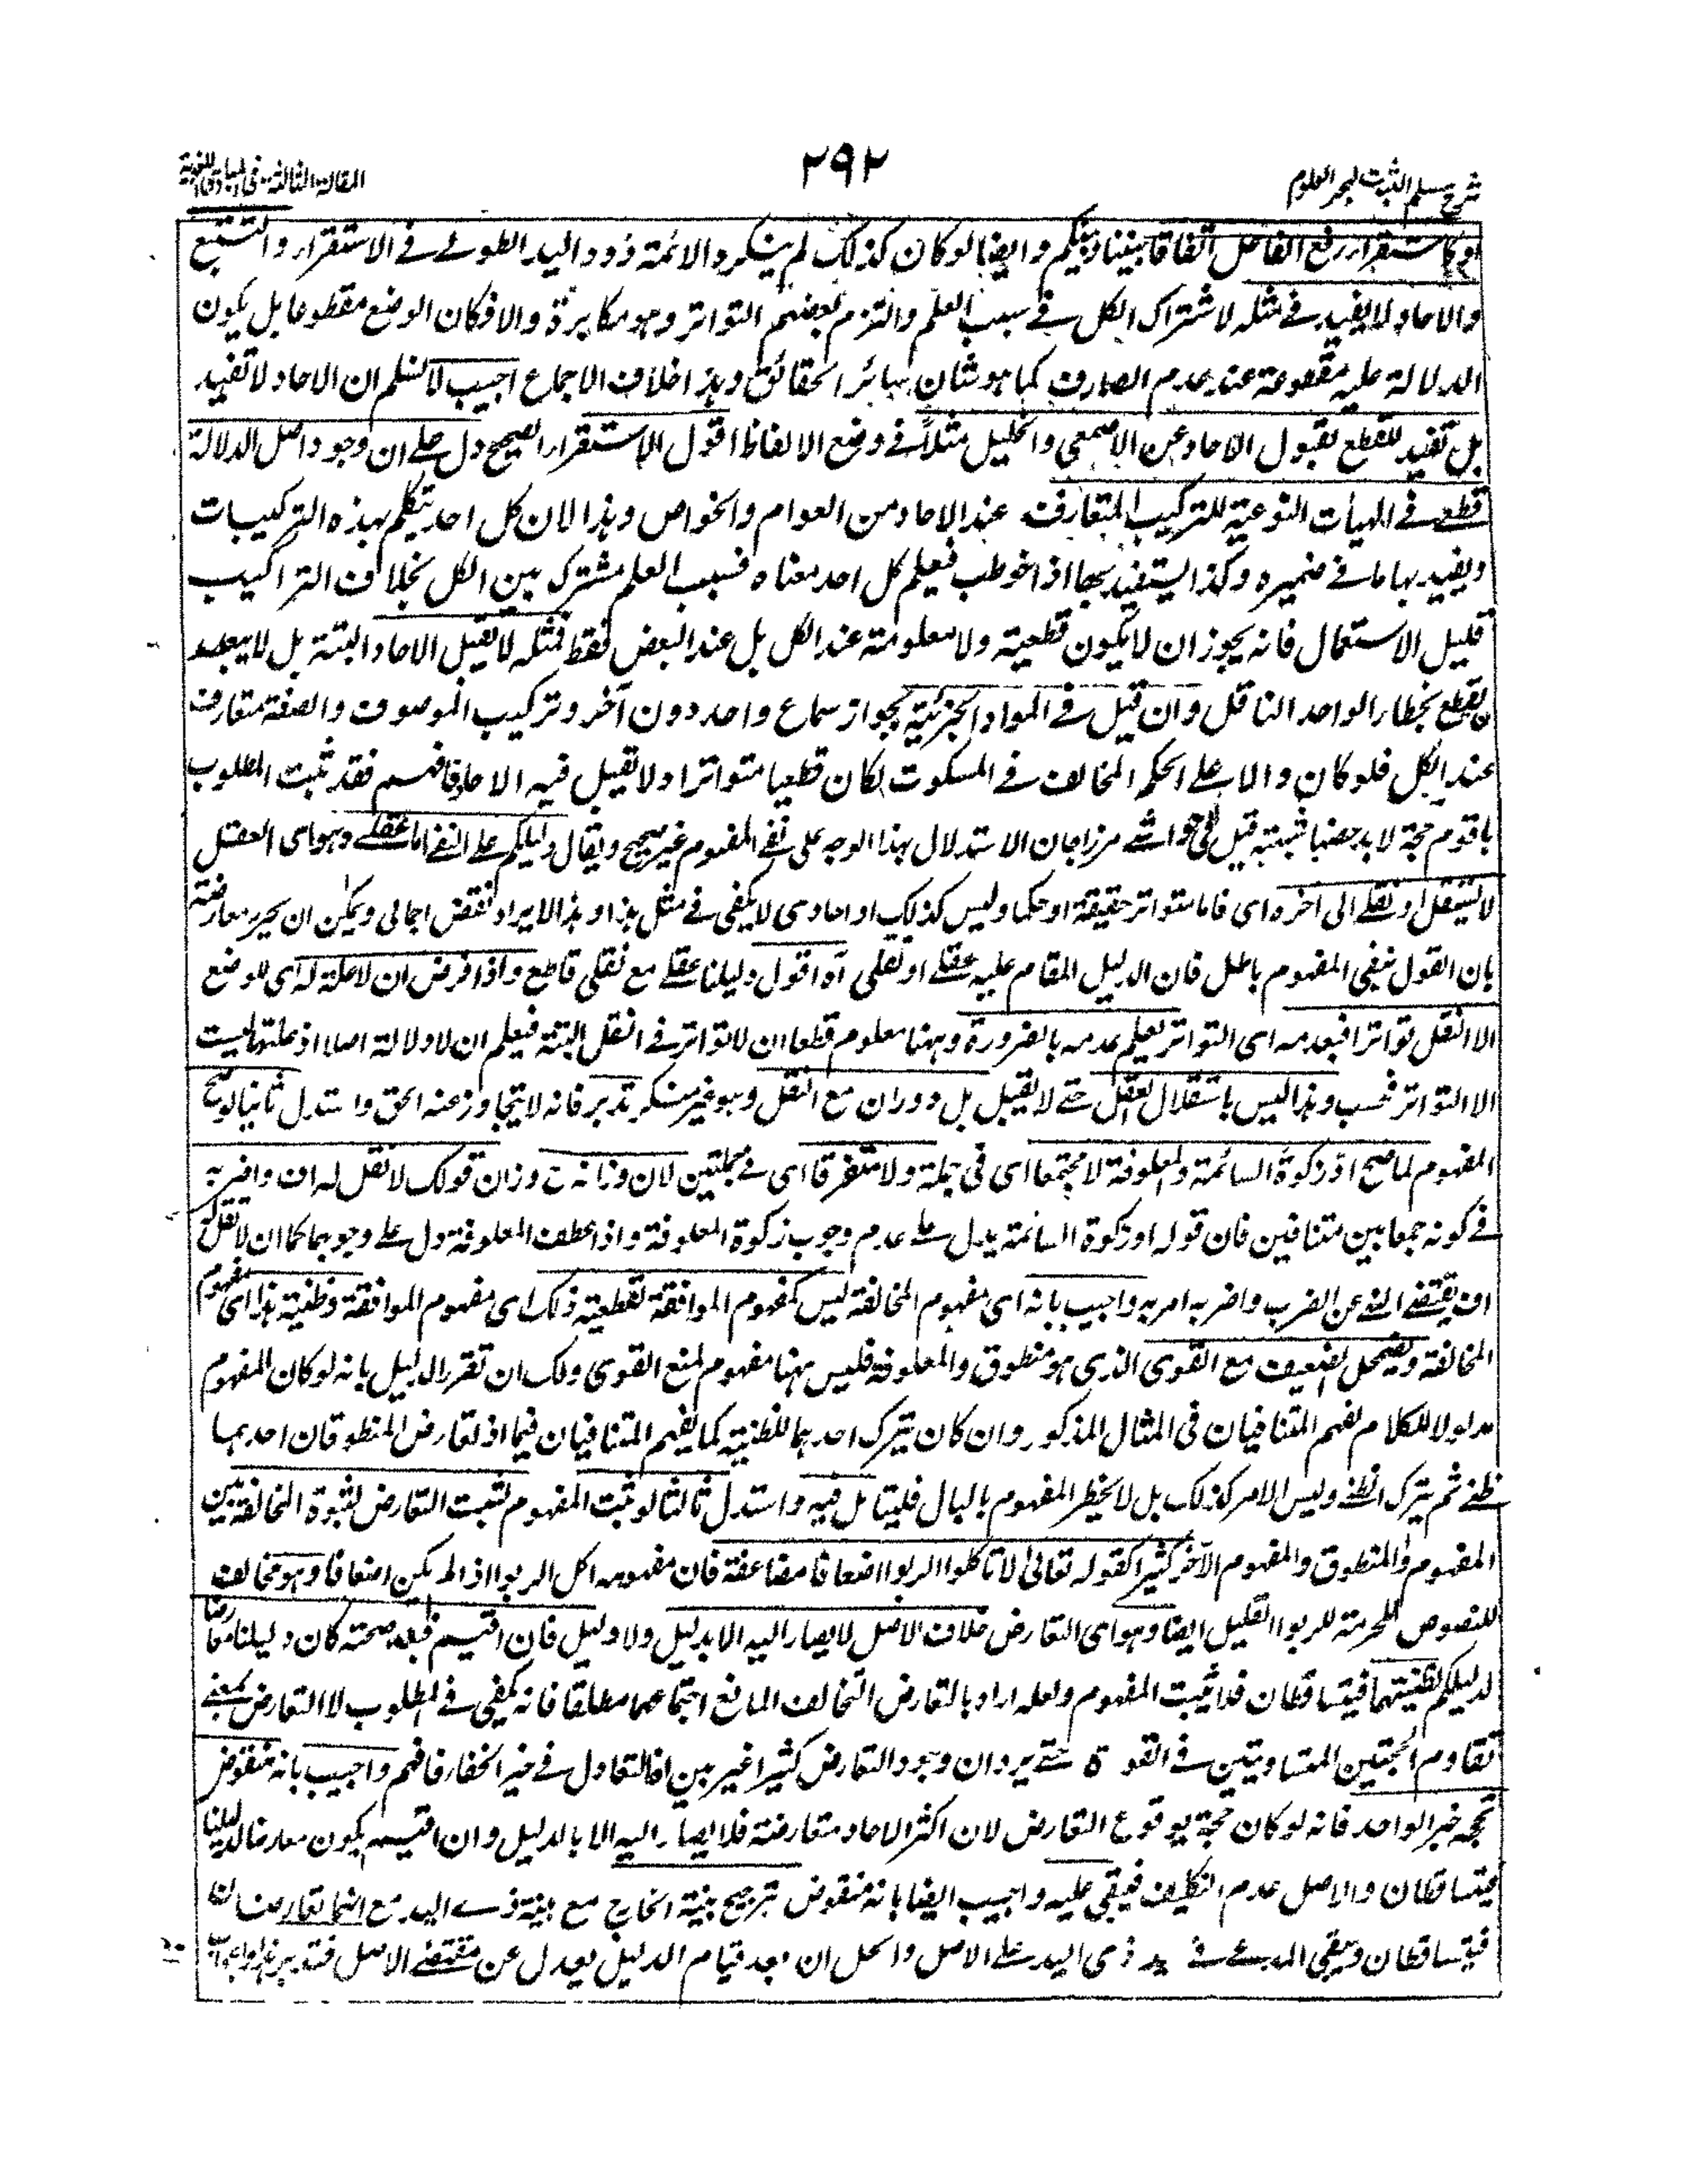 شرح مسلم الثبوت لبحر العلوم
٢٩٢
المقالة الثالثة فى المبادى اللغوية
او كاستقرار رفع الفاعل اتفاقا بيننا وبينكم وايضا لو كان كذلك لم ينكره الائمة ذوو اليد الطولى فى الاستقرار والتتبع
والاحاد لا يفيد فى مثله لاشتراك الكل فى سبب العلم والتزم بعضهم التواتر وهو مكابرة والا فكان الوضع مقطوعا بل يكون
الدلالة عليه مقطوعة عند عدم الصارف كما هو شان سائر الحقائق وهذا خلاف الاجماع اجيب لا نسلم ان الاحاد لا تفيد
بل تفيد للقطع بقبول الاحاد عن الاصمعى والخليل مثلا فى وضع الالفاظ اقول الاستقرار الصحيح دل على ان وجود اصل الدلالة
قطعى فى الهيأت النوعية للتركيب المتعارف عند الاحاد من العوام والخواص وهذا لان كل احد يتكلم بهذه التركيبات
ويفيد بها ما فى ضميره وكذا يستفيد بها اذا خوطب فيعلم كل احد معناه فسبب العلم مشترك بين الكل بخلاف التراكيب
قليل الاستعمال فانه يجوز ان لا يكون قطعية ولا معلومة عند الكل بل عند البعض فقط فمثله لا يقبل الاحاد البتة بل لا يبعد
يقطع بخطاء الواحد الناقل وان قبل فى المواد الجزئية لجواز سماع واحد دون آخر وتركيب الموصوف والصفة متعارف
عند الكل فلو كان دالا على الحكم المخالف فى المسكوت لكان قطعيا متواترا ولا يقبل فيه الاحاد فافهم فقد ثبت المطلوب
باقوم حجة لا يدحضها شبهة قيل فى حواشى مرزاجان الاستدلال بهذا الوجه على نفى المفهوم غير صحيح ويقال دليلكم على النفى اما عقلى وهو اى العقل
لا يستقل او نقلى الى آخره اى فاما متواتر حقيقة او حكما وليس كذلك او احادى لا يكفى فى مثل هذا وهذا الايراد نقض اجمالى ويمكن ان يحرر معارضة
بان القول بنفى المفهوم باطل فان الدليل المقام عليه عقلى او نقلى آه اقول دليلنا عقلى مع نقلى قاطع واذا فرض ان لا علة له اى للوضع
الا النقل تواترا فبعدمه اى التواتر يعلم عدمه بالضرورة وههنا معلوم قطعا ان لا تواتر فى النقل البتة فيعلم ان لا دلالة اصلا اذ علتها ليست
الا التواتر فحسب وهذا ليس باستقلال العقل حتى لا يقبل بل دوران مع النقل وهو غير منكر تدبر فانه لا يتجاوز عنه الحق واستدل ثانيا لو صح
المفهوم لما صح اد زكوة السائمة والمعلوفة لا مجتمعا اى فى جملة ولا متفرقا اى فى جملتين لان وزانه ح وزان قولك لا تقل له اف واضربه
فى كونه جمعا بين متنافيين فان قوله اد زكوة السائمة يدل على عدم وجوب زكوة المعلوفة واذا عطف المعلوفة دل على وجوبها كما ان لا تقل له
اف يقتضى النهى عن الضرب واضربه امر به واجيب بانه اى مفهوم المخالفة ليس كمفهوم الموافقة لقطعية ذلك اى مفهوم الموافقة وظنية هذا اى مفهوم
المخالفة ويضمحل الضعيف مع القوى الذى هو منطوق والمعلوفة فليس ههنا مفهوم لمنع القوى ولك ان تقرر الدليل بانه لو كان المفهوم
مدلولا للكلام لفهم المتنافيان فى المثال المذكور وان كان يترك احدهما للظنية كما يفهم المتنافيان فيما اذا تعارض المنطوقان احدهما
ظنى ثم يترك الظنى وليس الامر كذلك بل لا يخطر المفهوم بالبال فليتامل فيه واستدل ثالثا لو ثبت المفهوم لثبت التعارض لثبوة المخالفة بين
المفهوم والمنطوق والمفهوم الآخر كثيرا كقوله تعالى لا تاكلوا الربوا اضعافا مضاعفة فان مفهومه اكل الربوا اذا لم يكن اضعافا وهو مخالف
للنصوص المحرمة للربوا القليل ايضا وهو اى التعارض خلاف الاصل لا يصار اليه الا بدليل ولا دليل فان اقيم فبعد صحته كان دليلنا معارضا
لدليلكم لظنيتهما فيتساقطان فلا يثبت المفهوم ولعله اراد بالتعارض التخالف المانع اجتماعهما مطلقا فانه يكفى فى المطلوب لا التعارض بمعنى
تقاوم الحجتين المتساويتين فى القوة حتى يرد ان وجود التعارض كثيرا غير بين اذ التعادل فى حيز الخفاء فافهم واجيب بانه منقوض
بحجية خبر الواحد فانه لو كان حجة يوقوع التعارض لان اكثر الاحاد متعارضة فلا يصار اليه الا بالدليل وان اقيم يكون معارضا لدليلنا
فيتساقطان والاصل عدم التكليف فيبقى عليه واجيب ايضا بانه منقوض بترجيح بينة الخارج مع بينة ذى اليد مع انهما تعارضتا
فيتساقطان ويبقى المدعى فى يد ذى اليد على الاصل والحل ان بعد قيام الدليل يعدل عن مقتضى الاصل فتدبر